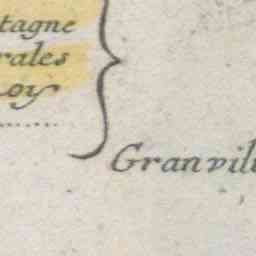 tagne
rales
oy
Granvil